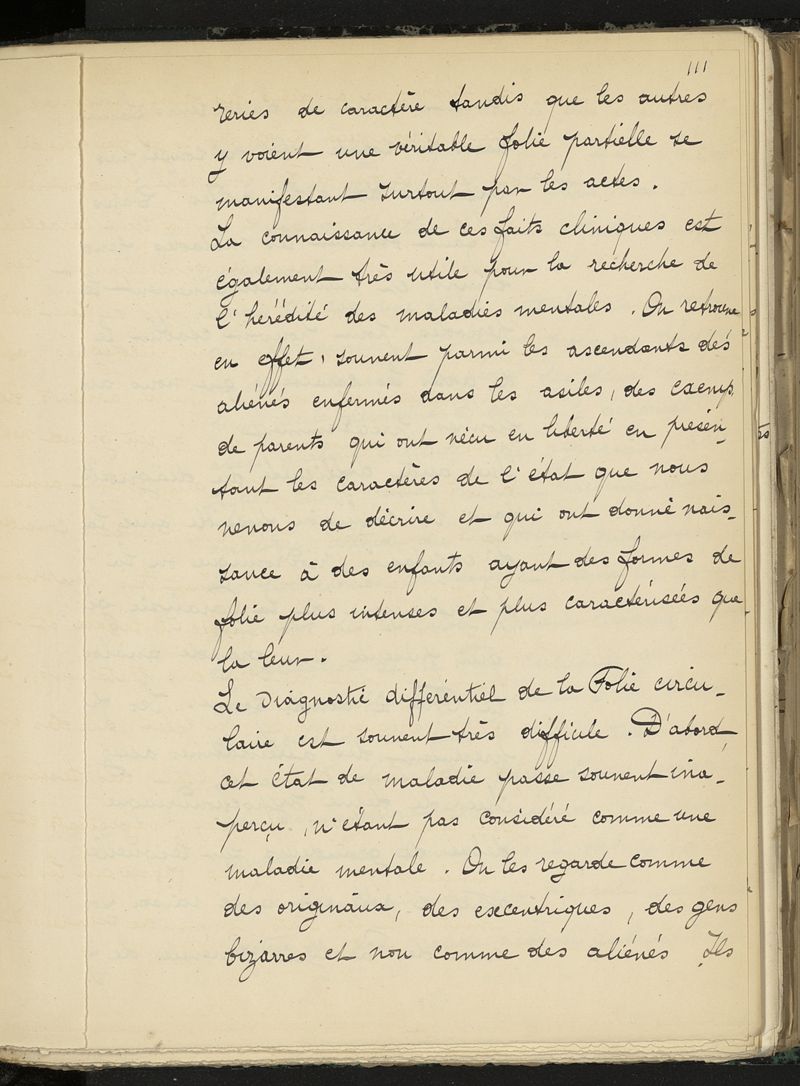 111
reries de caractère tandis que les autres
y voient une véritable folie partielle se
manifestant surtout par les actes.
La connaissance de ces faits cliniques est
également très utile pour la recherche de
l'hérédité des maladies mentales. On retrouve
en effet, souvent parmi les ascendants des
aliénés enfermés dans les asiles, des exemp
de parents qui ont vécu en liberté en présen-
tant les caractères de l'état que nous
venons de décrire et qui ont donné nais-
sance à des enfants ayant des formes de
folie plus intenses et plus caractérisées que
la leur.
Le Diagnostic différentiel de la Folie circu-
laire est souvent très difficile. D'abord,
cet état de maladie passe souvent ina-
perçu, n'étant pas considéré comme une
maladie mentale. On les regarde comme
des originaux, des excentriques, des gens
bizarres et non comme des aliénés Ils